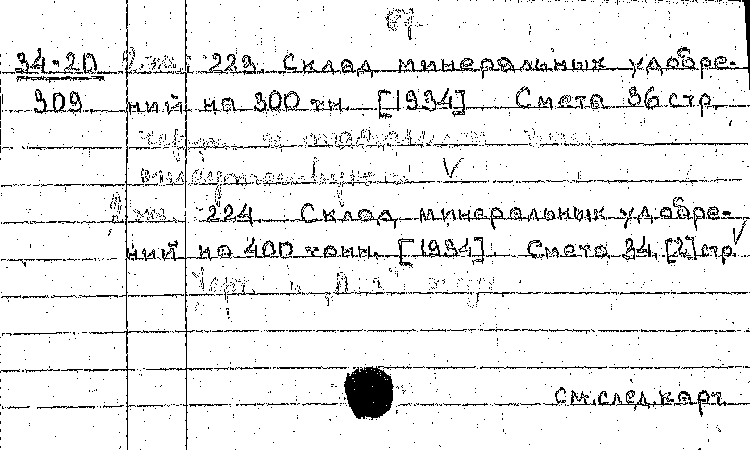 67
34-20 2 эк. 223. Склад минеральных удобре-
909. ний на 300 тн. [1934] Смета 36 стр.
отсутствуют V
2 эк. 224. Склад минеральных удобре-
ний на 400 тонн. [1934]. Смета 34, [2] стр. V
Черт. и
см. след. карт.